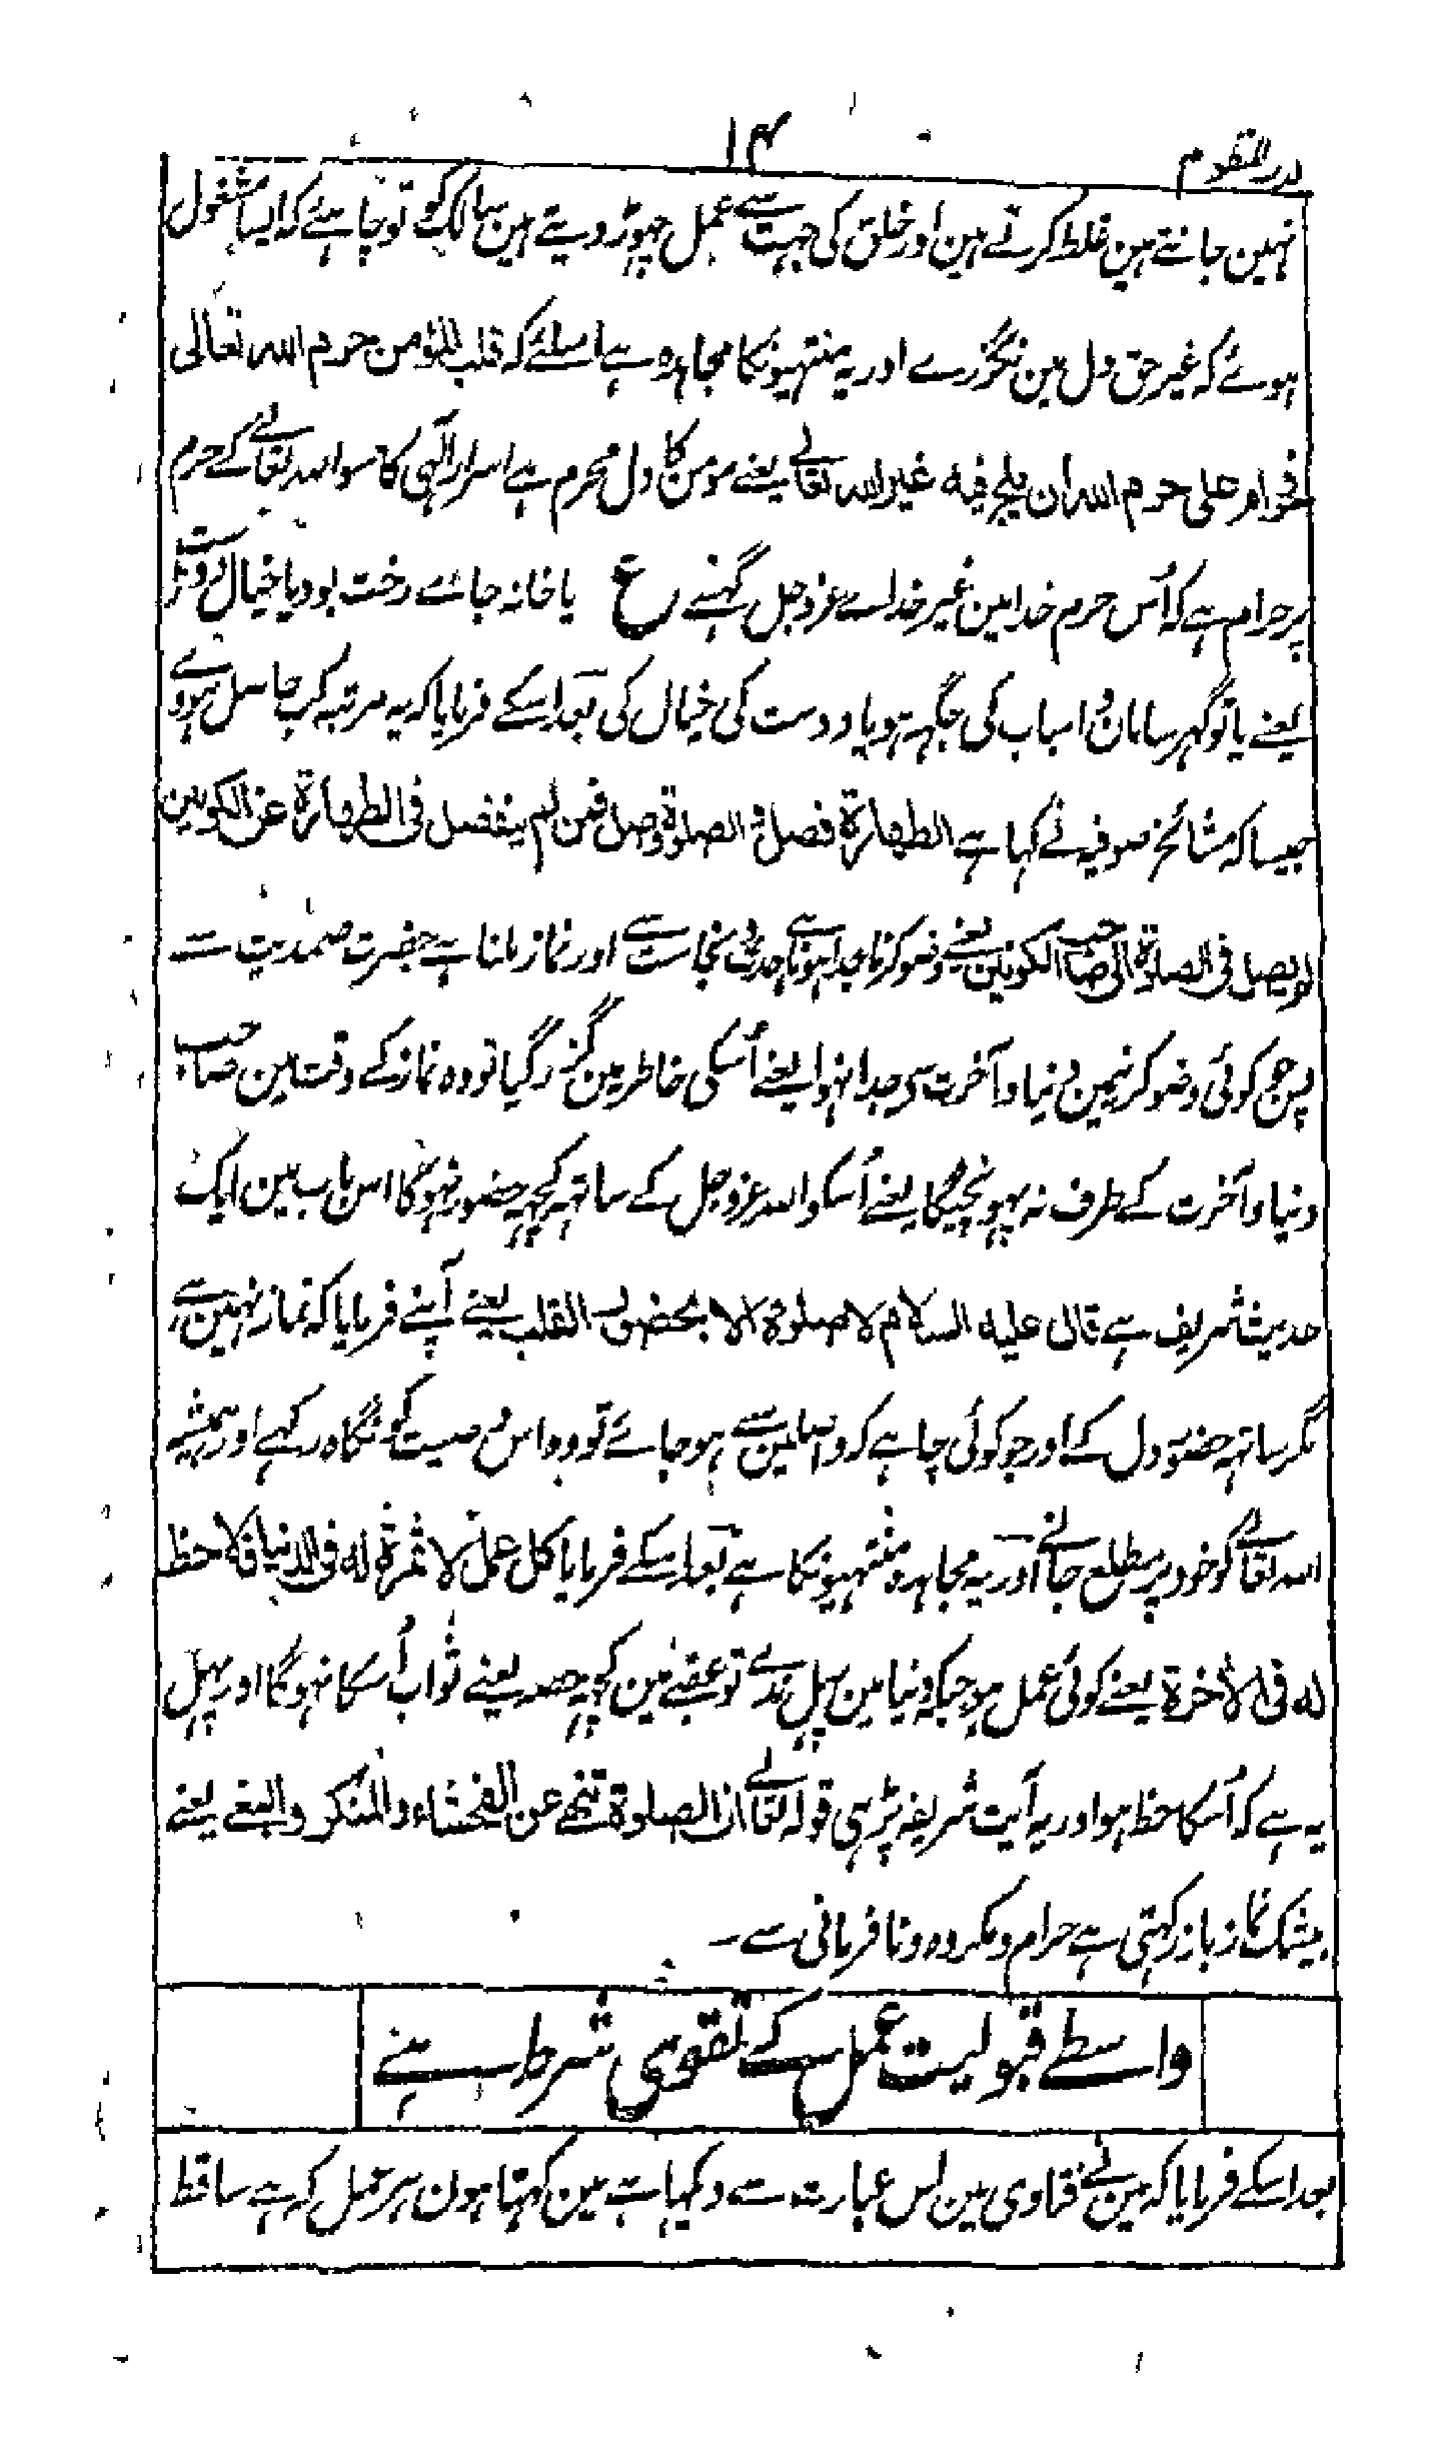 ۱۴
درالمنظوم
نہین جانتے ہین غلط کرتے ہین اور خلق کی جہت سے عمل چہوڑ دیتے ہین سالک کو تو چاہئے کہ ایسا مشغول
ہوئے کہ غیر حق دل مین نگزرے اور یہ منتہیونکا مجاہدہ ہے اسلئے کہ قلب المؤمن حرم اللہ تعالی
فحرام علی حرم اللہ ان یلج فیہ غیر اللہ تعالے یعنے مومن کا دل محرم ہے اسرار الٓہی کا سو اللہ تعالے کے حرم
پر حرام ہے کہ اُس حرم خدا مین غیر خداے عزوجل گہنسے ع یا خانہ جائے رخت بود یا خیال دوست
یعنے یا تو گہر سامان و اسباب کی جگہہ ہو یا دوست کی خیال کی بعد اسکے فرمایا کہ یہ مرتبہ کب حاصل ہووے
جیسا کہ مشائخ صوفیہ نے کہا ہے الطہارۃ فصل و الصلوۃ وصل فمن لم ینفصل فی الطہارۃ عن الکونین
لم یصل فی الصلوۃ الی صاحب الکونین یعنے وضو کرنا جدا ہونا ہے حدث و نجاست سے اور نماز ملنا ہے حضرت صمدیت سے
پس جو کوئی وضو کرنیمین دنیا و آخرت سی جدا نہوا یعنے اُسکی خاطر مین گزر گیا تو وہ نماز کے وقت مین صاحب
دنیا و آخرت کے طرف نہ پہونچیگا یعنے اُسکو اللہ عزوجل کے ساتہہ کچہہ حضور نہوگا اس باب مین ایک
حدیث شریف ہے قال علیہ السلام لا صلوۃ الا بحضور القلب یعنے آپنے فرمایا کہ نماز نہین ہے
مگر ساتہہ حضور دل کے اور جو کوئی چاہے کہ واصلین سے ہو جائے تو وہ اس وصیت کو نگاہ رکہے اور ہمیشہ
اللہ تعالے کو خود پر مطلع جانے اور یہ مجاہدہ منتہیونکا ہے بعد اسکے فرمایا کل عمل لا ثمرۃ لہ فی الدنیا فلا حظ
لہ فی الاخرۃ یعنے کوئی عمل ہو جبکہ دنیا مین پہل ندے تو عقبے مین کچہہ حصہ یعنے ثواب اُسکا نہوگا اور پہل
یہ ہے کہ اُسکا حظ ہو اور یہ آیت شریفہ پڑہی قولہ تعالے ان الصلوۃ تنہے عن الفحشاء و المنکر و البغے یعنے
بیشک نماز باز رکہتی ہے حرام و مکروہ و نافرمانی سے۔
واسطے قبولیت عمل کے تقوی شرط ہے
بعد اسکے فرمایا کہ مین نے فتاوی مین اس عبارت سے دیکہا ہے مین کہتا ہون ہر عمل کہ ہے ساقط